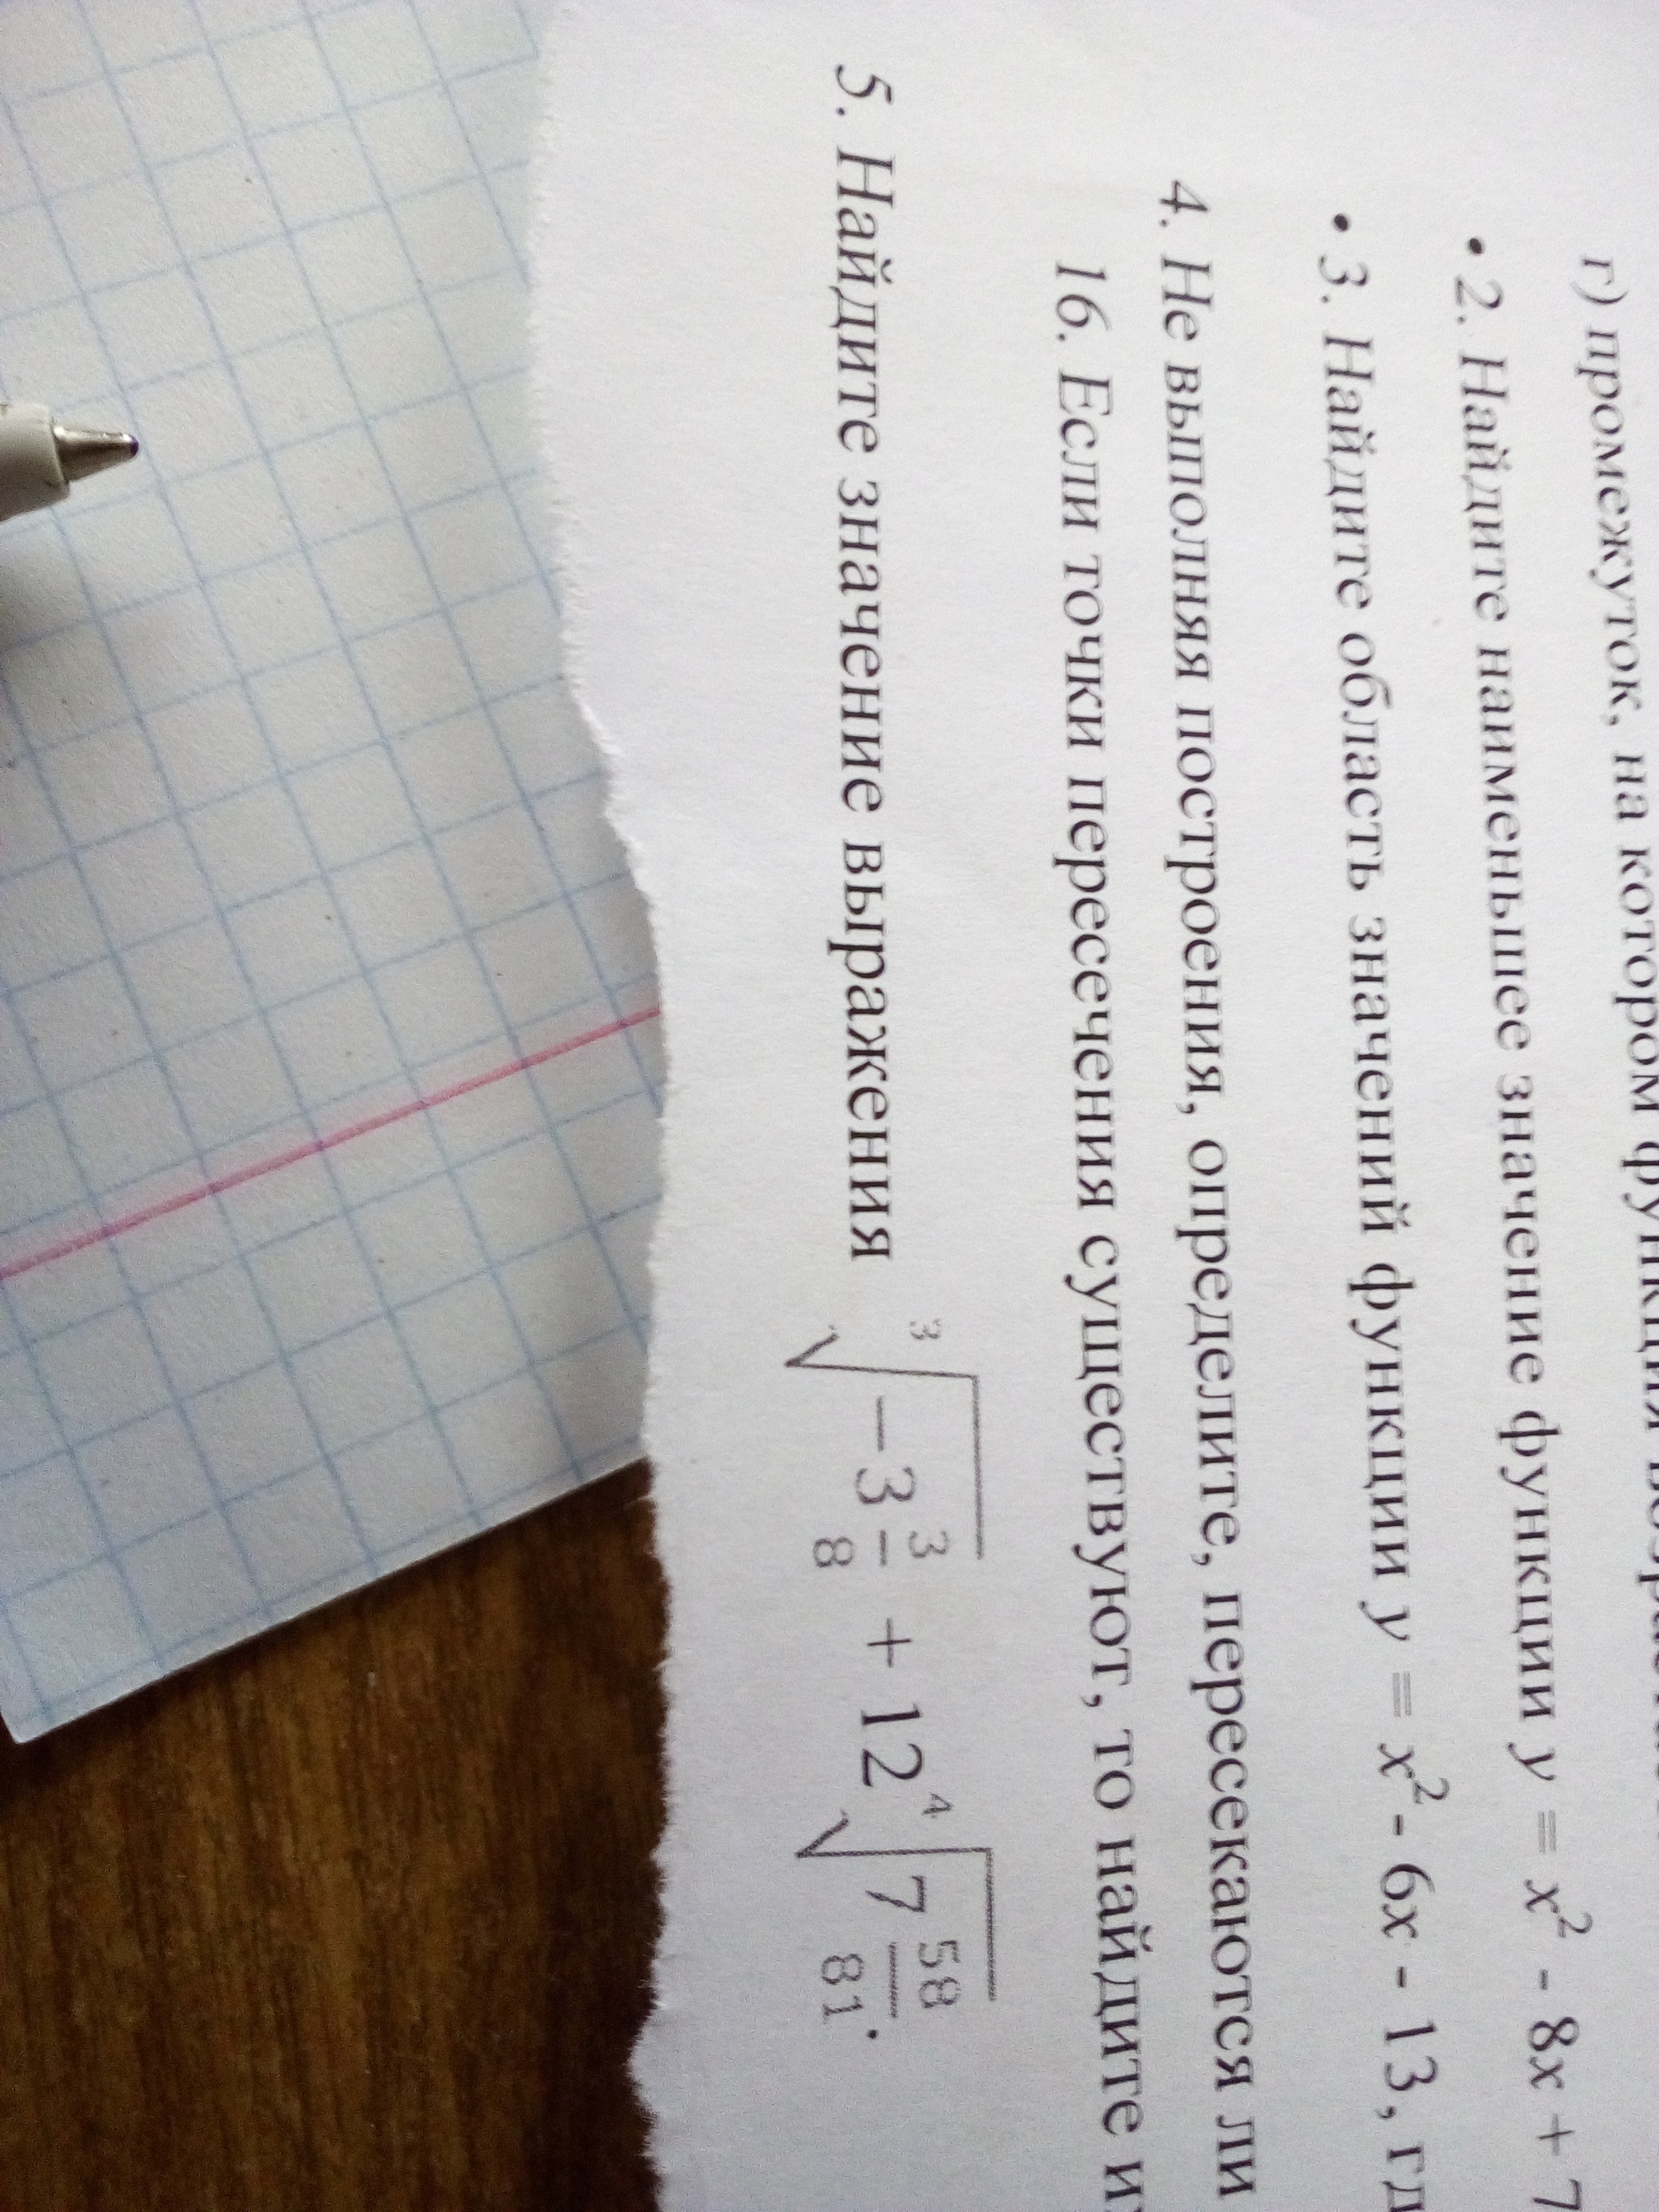 г) промежуток, на котором функция
• 2. Найдите наименьшее значение функции y = x² - 8x + 7
• 3. Найдите область значений функции y = x² - 6x - 13, гд
4. Не выполняя построения, определите, пересекаются ли
16. Если точки пересечения существуют, то найдите их
5. Найдите значение выражения ∛(-3 3/8) + 12 ∜(7 58/81).